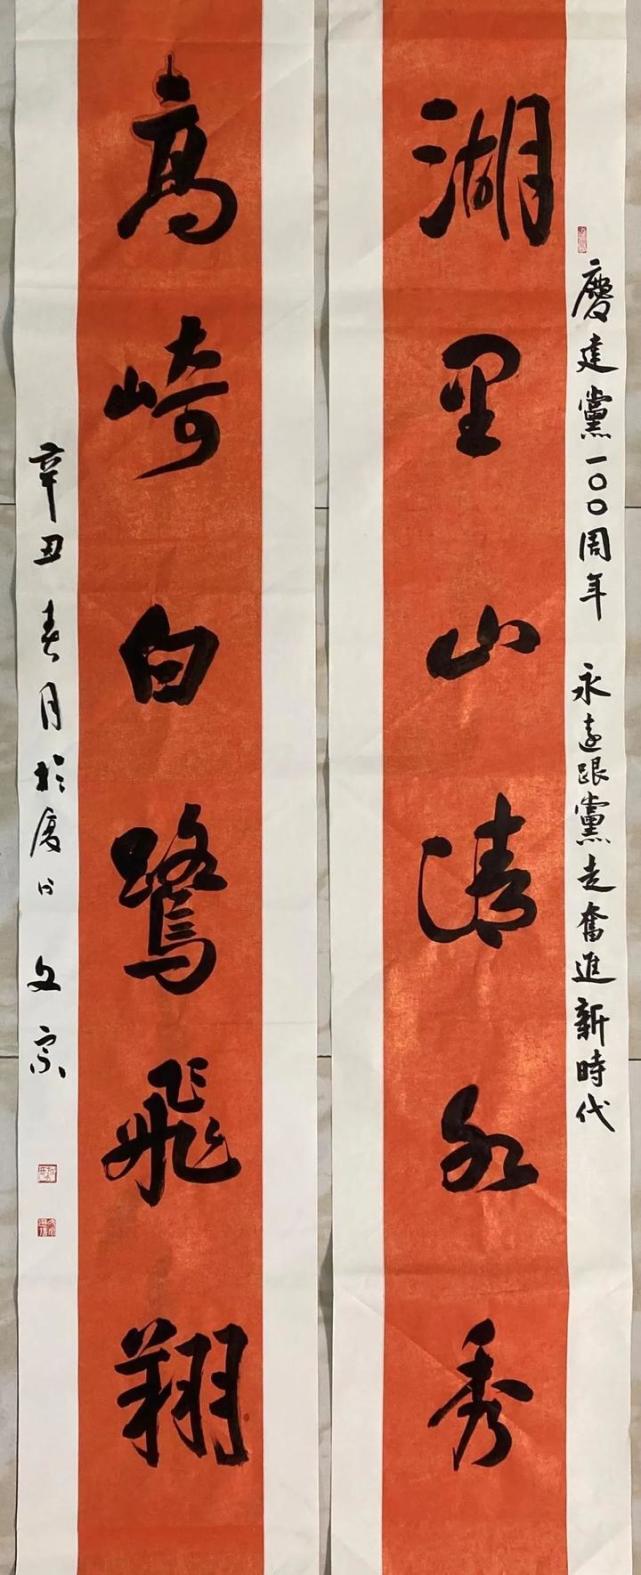 慶建黨一〇〇周年 永遠跟黨走奮進新時代
湖里山清水秀
高崎白鷺飛翔
辛丑春月於厦门 文宗